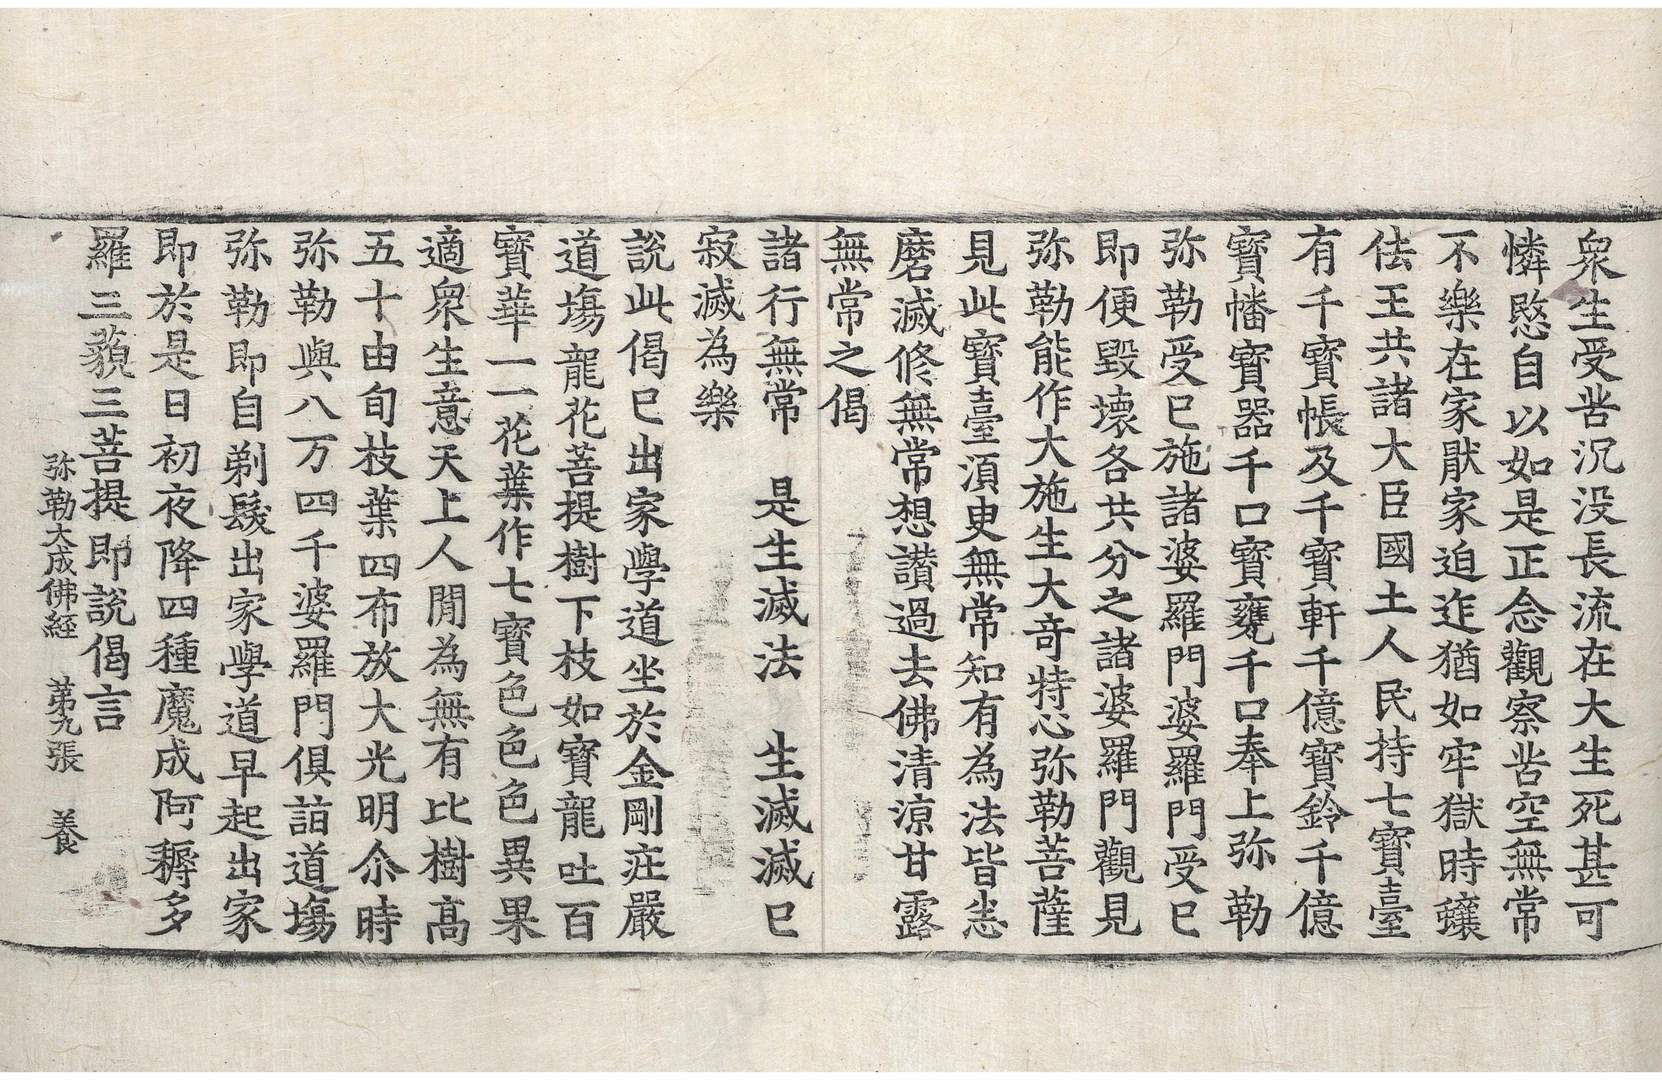 衆生受苦沉没長流在大生死甚可
憐愍自以如是正念觀察苦空無常
不樂在家猒家迫迮猶如牢獄時蠰
佉王共諸大臣國土人民持七寶臺
有千寶帳及千寶軒千億寶鈴千億
寶幡寶器千口寶甕千口奉上弥勒
弥勒受已施諸婆羅門婆羅門受已
即便毀壞各共分之諸婆羅門觀見
弥勒能作大施生大竒特心弥勒菩薩
見此寶臺湏臾無常知有為法皆悉
磨滅修無常想讃過去佛清涼甘露
無常之偈
諸行無常　是生滅法　生滅滅已
寂滅為樂
說此偈已出家學道坐於金剛莊嚴
道場龍花菩提樹下枝如寶龍吐百
寶華一一花葉作七寶色色色異果
適衆生意天上人間為無有比樹高
五十由旬枝葉四布放大光明尒時
弥勒與八万四千婆羅門俱詣道場
弥勒即自剃髮出家學道早起出家
即於是日初夜降四種魔成阿耨多
羅三藐三菩提即說偈言
弥勒大成佛經　第九張　養